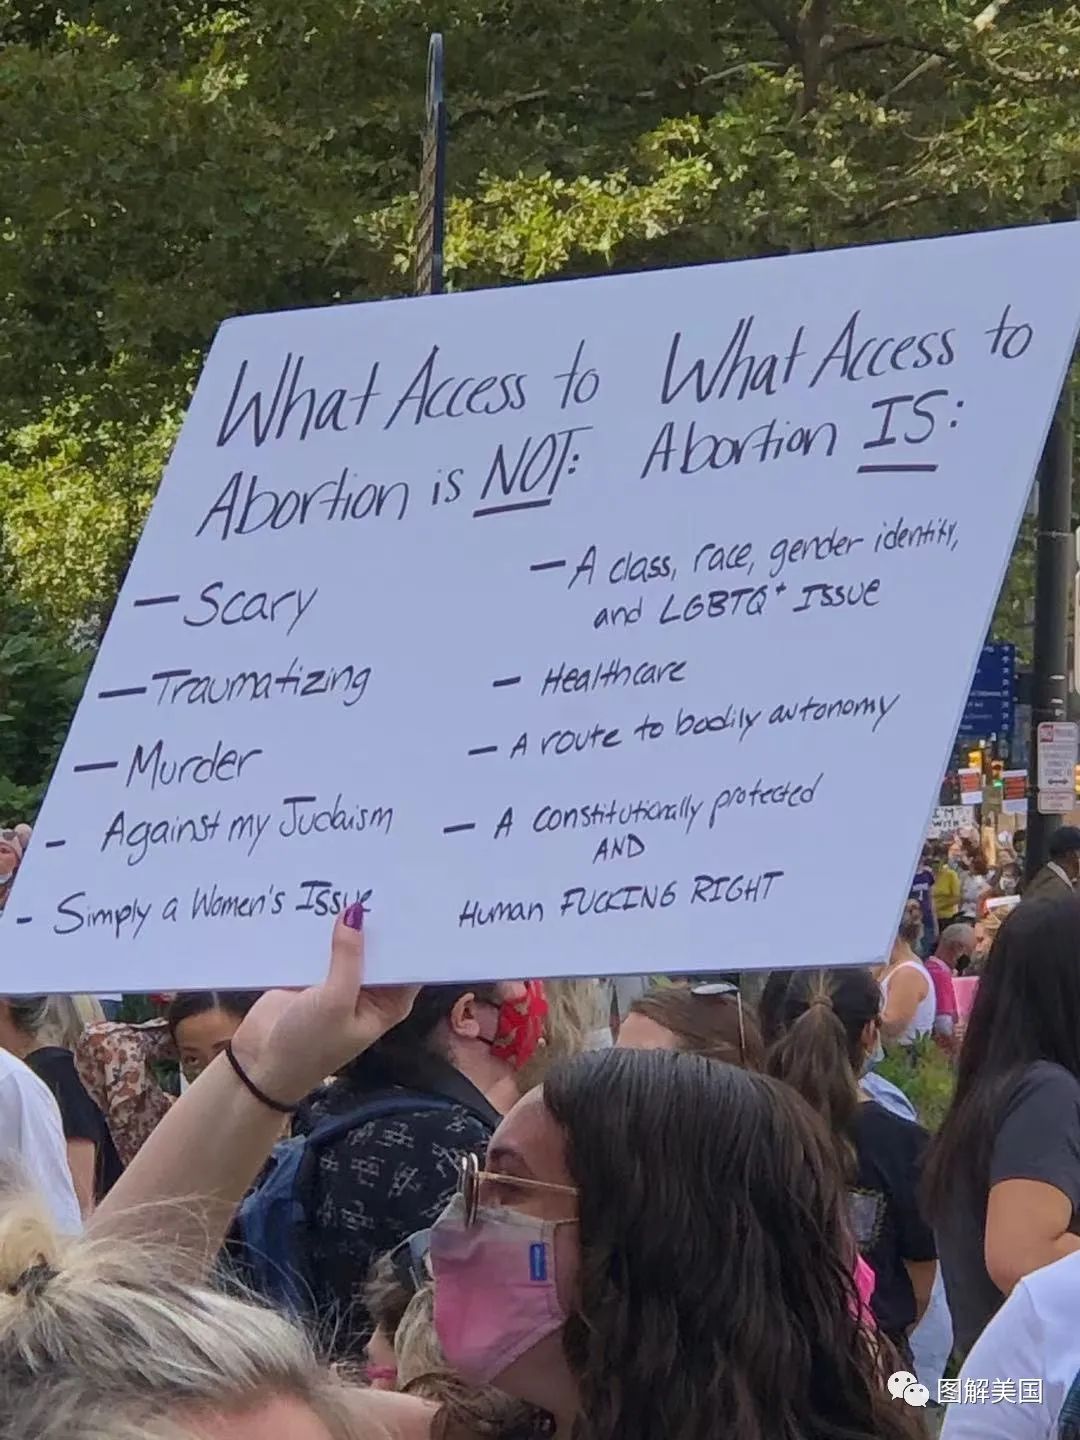 What Access to
Abortion is NOT:
— Scary
— Traumatizing
— Murder
- Against my Judaism
- Simply a Women's Issue
What Access to
Abortion IS:
— A class, race, gender identity,
and LGBTQ+ Issue
— Healthcare
— A route to bodily autonomy
— A constitutionally protected
AND
Human FUCKING RIGHT
I'M
WITH
图解美国